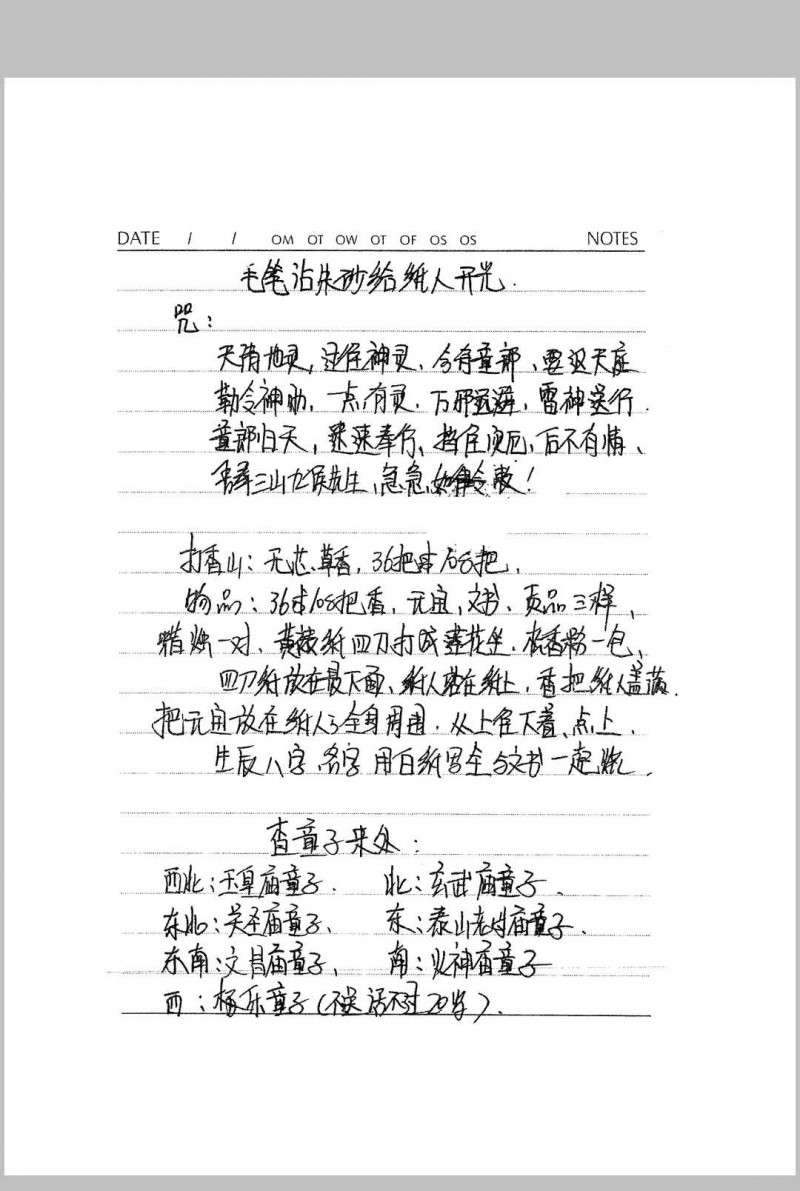 DATE / / OM OT OW OT OF OS OS NOTES
毛笔沾朱砂给纸人开光.
咒:
天清地灵, 神灵、今有童郎、要返天庭
勒令神助, 一点有灵. 万邪远避, 雷神奉行.
童郎归天, 速速奉行、挡住灾厄, 后不有情、
奉三山九侯先生, 急急如律令敕!
打香山: 无芯草香, 36把或108把,
物品: 36或108把香, 元宝, 文书、贡品三样,
蜡烛一对、黄裱纸四刀打成莲花坐. 松香粉一包,
四刀纸放在最下面, 纸人站在纸上, 香把纸人盖满.
把元宝放在纸人全身周围. 从上往下着、点上.
生辰八字, 名字 用白纸写全与文书一起烧.
查童子来处:
西北: 玉皇庙童子. 北: 玄武庙童子、
东北: 关圣庙童子、 东: 泰山老母庙童子.
东南: 文昌庙童子、 南: 火神庙童子
西: 童子(不送活不过20岁).